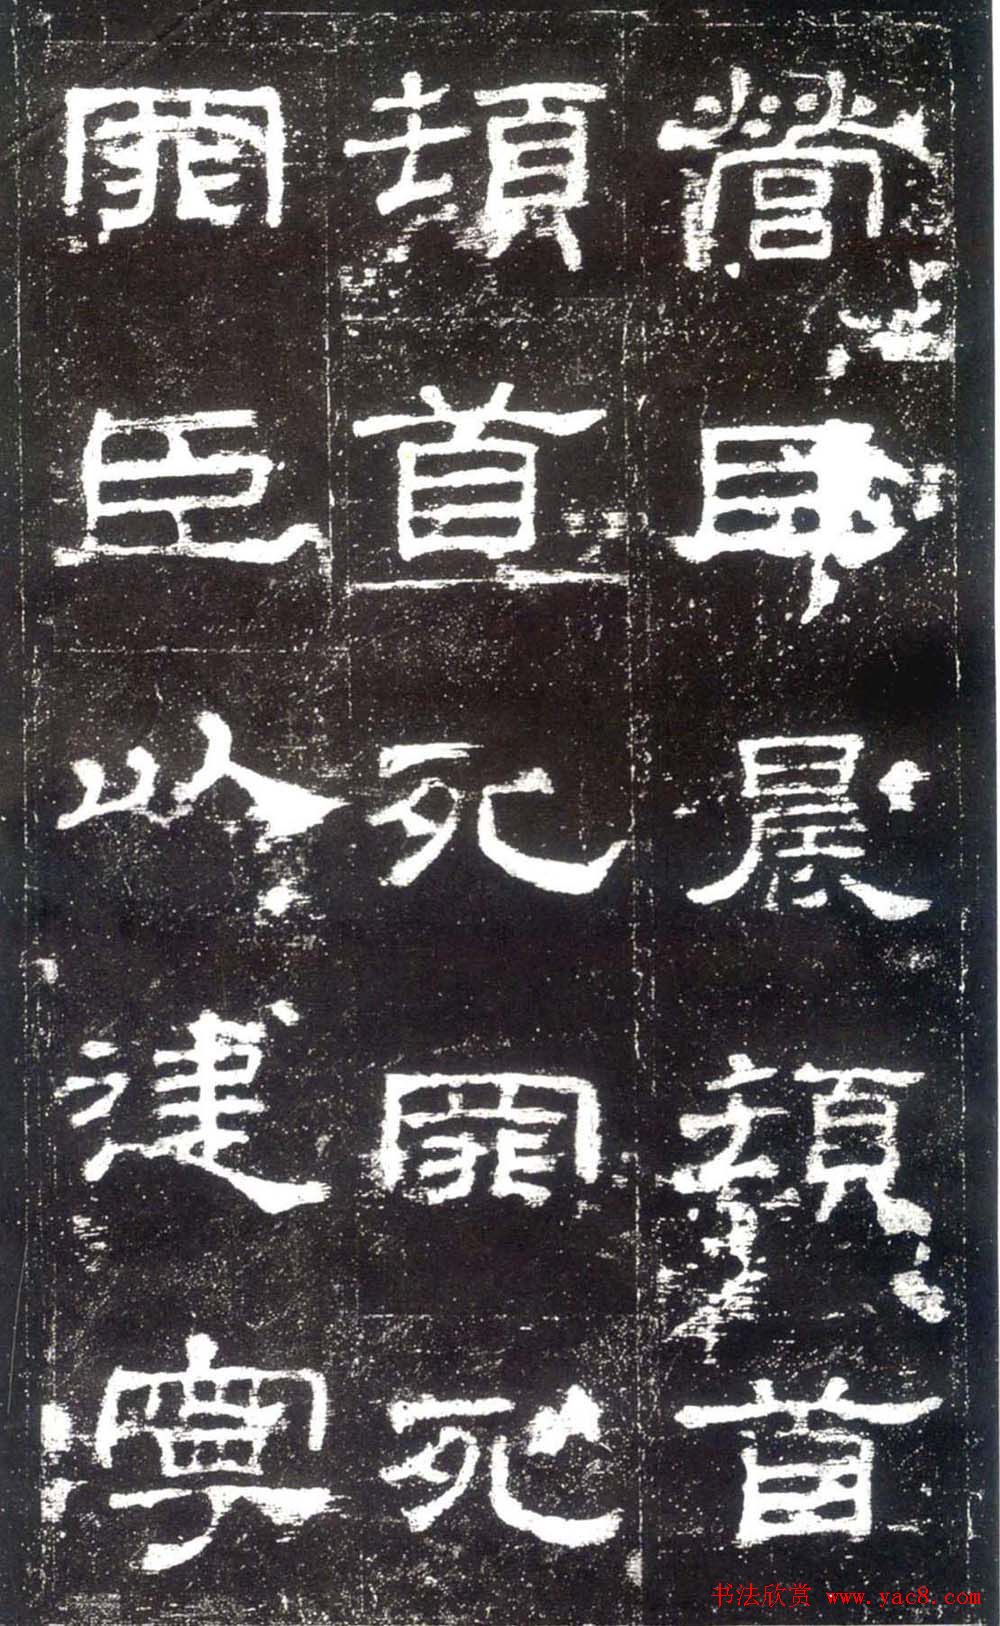 營臣晨頓首
頓首死罪死
罪臣以建寧
书法欣赏 www.yac8.com